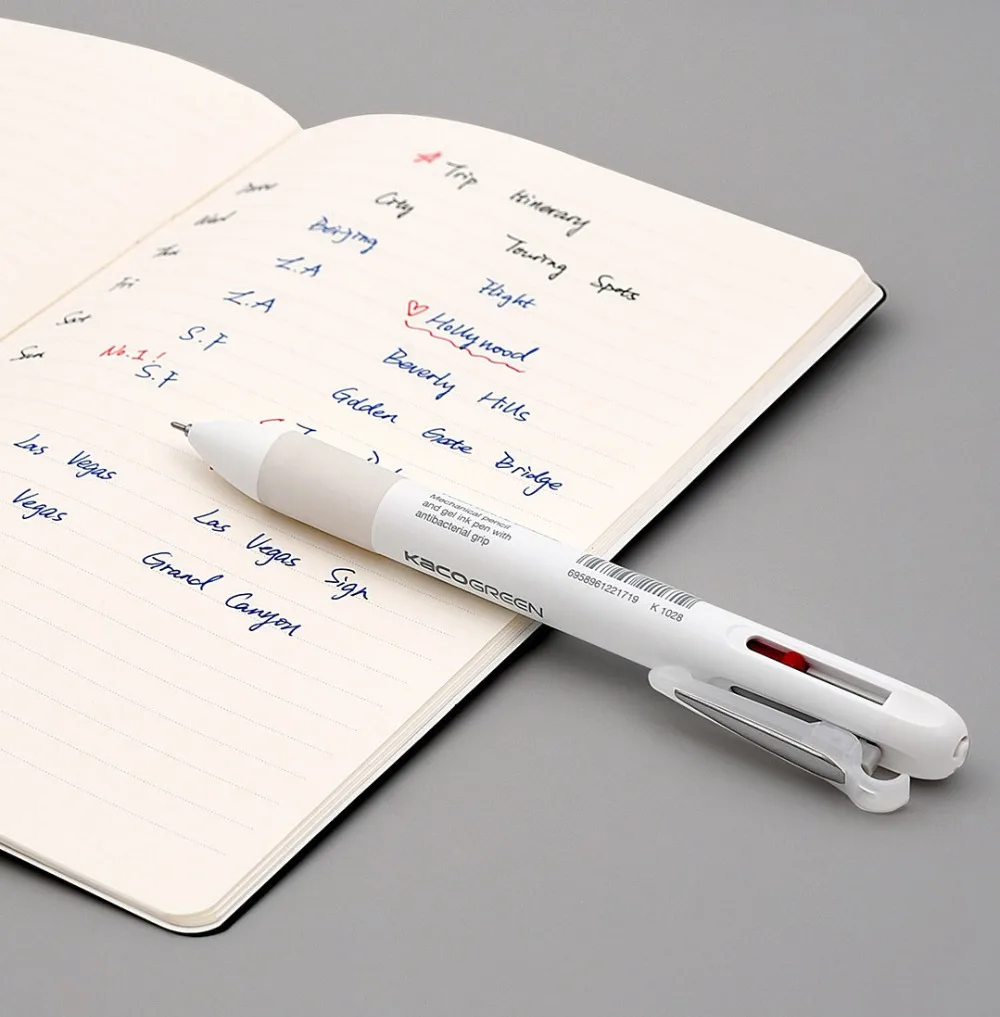 Trip Itinerary
City Touring Spots
Wed Beijing Flight
Thu L.A Hollywood
Fri L.A Beverly Hills
Sat S.F Golden Gate Bridge
Sun No.1! S.F
Las Vegas Las Vegas Sign
Vegas Grand Canyon
Mechanical pencil
and gel ink pen with
antibacterial grip
KACOGREEN
6958961221719 K 1028